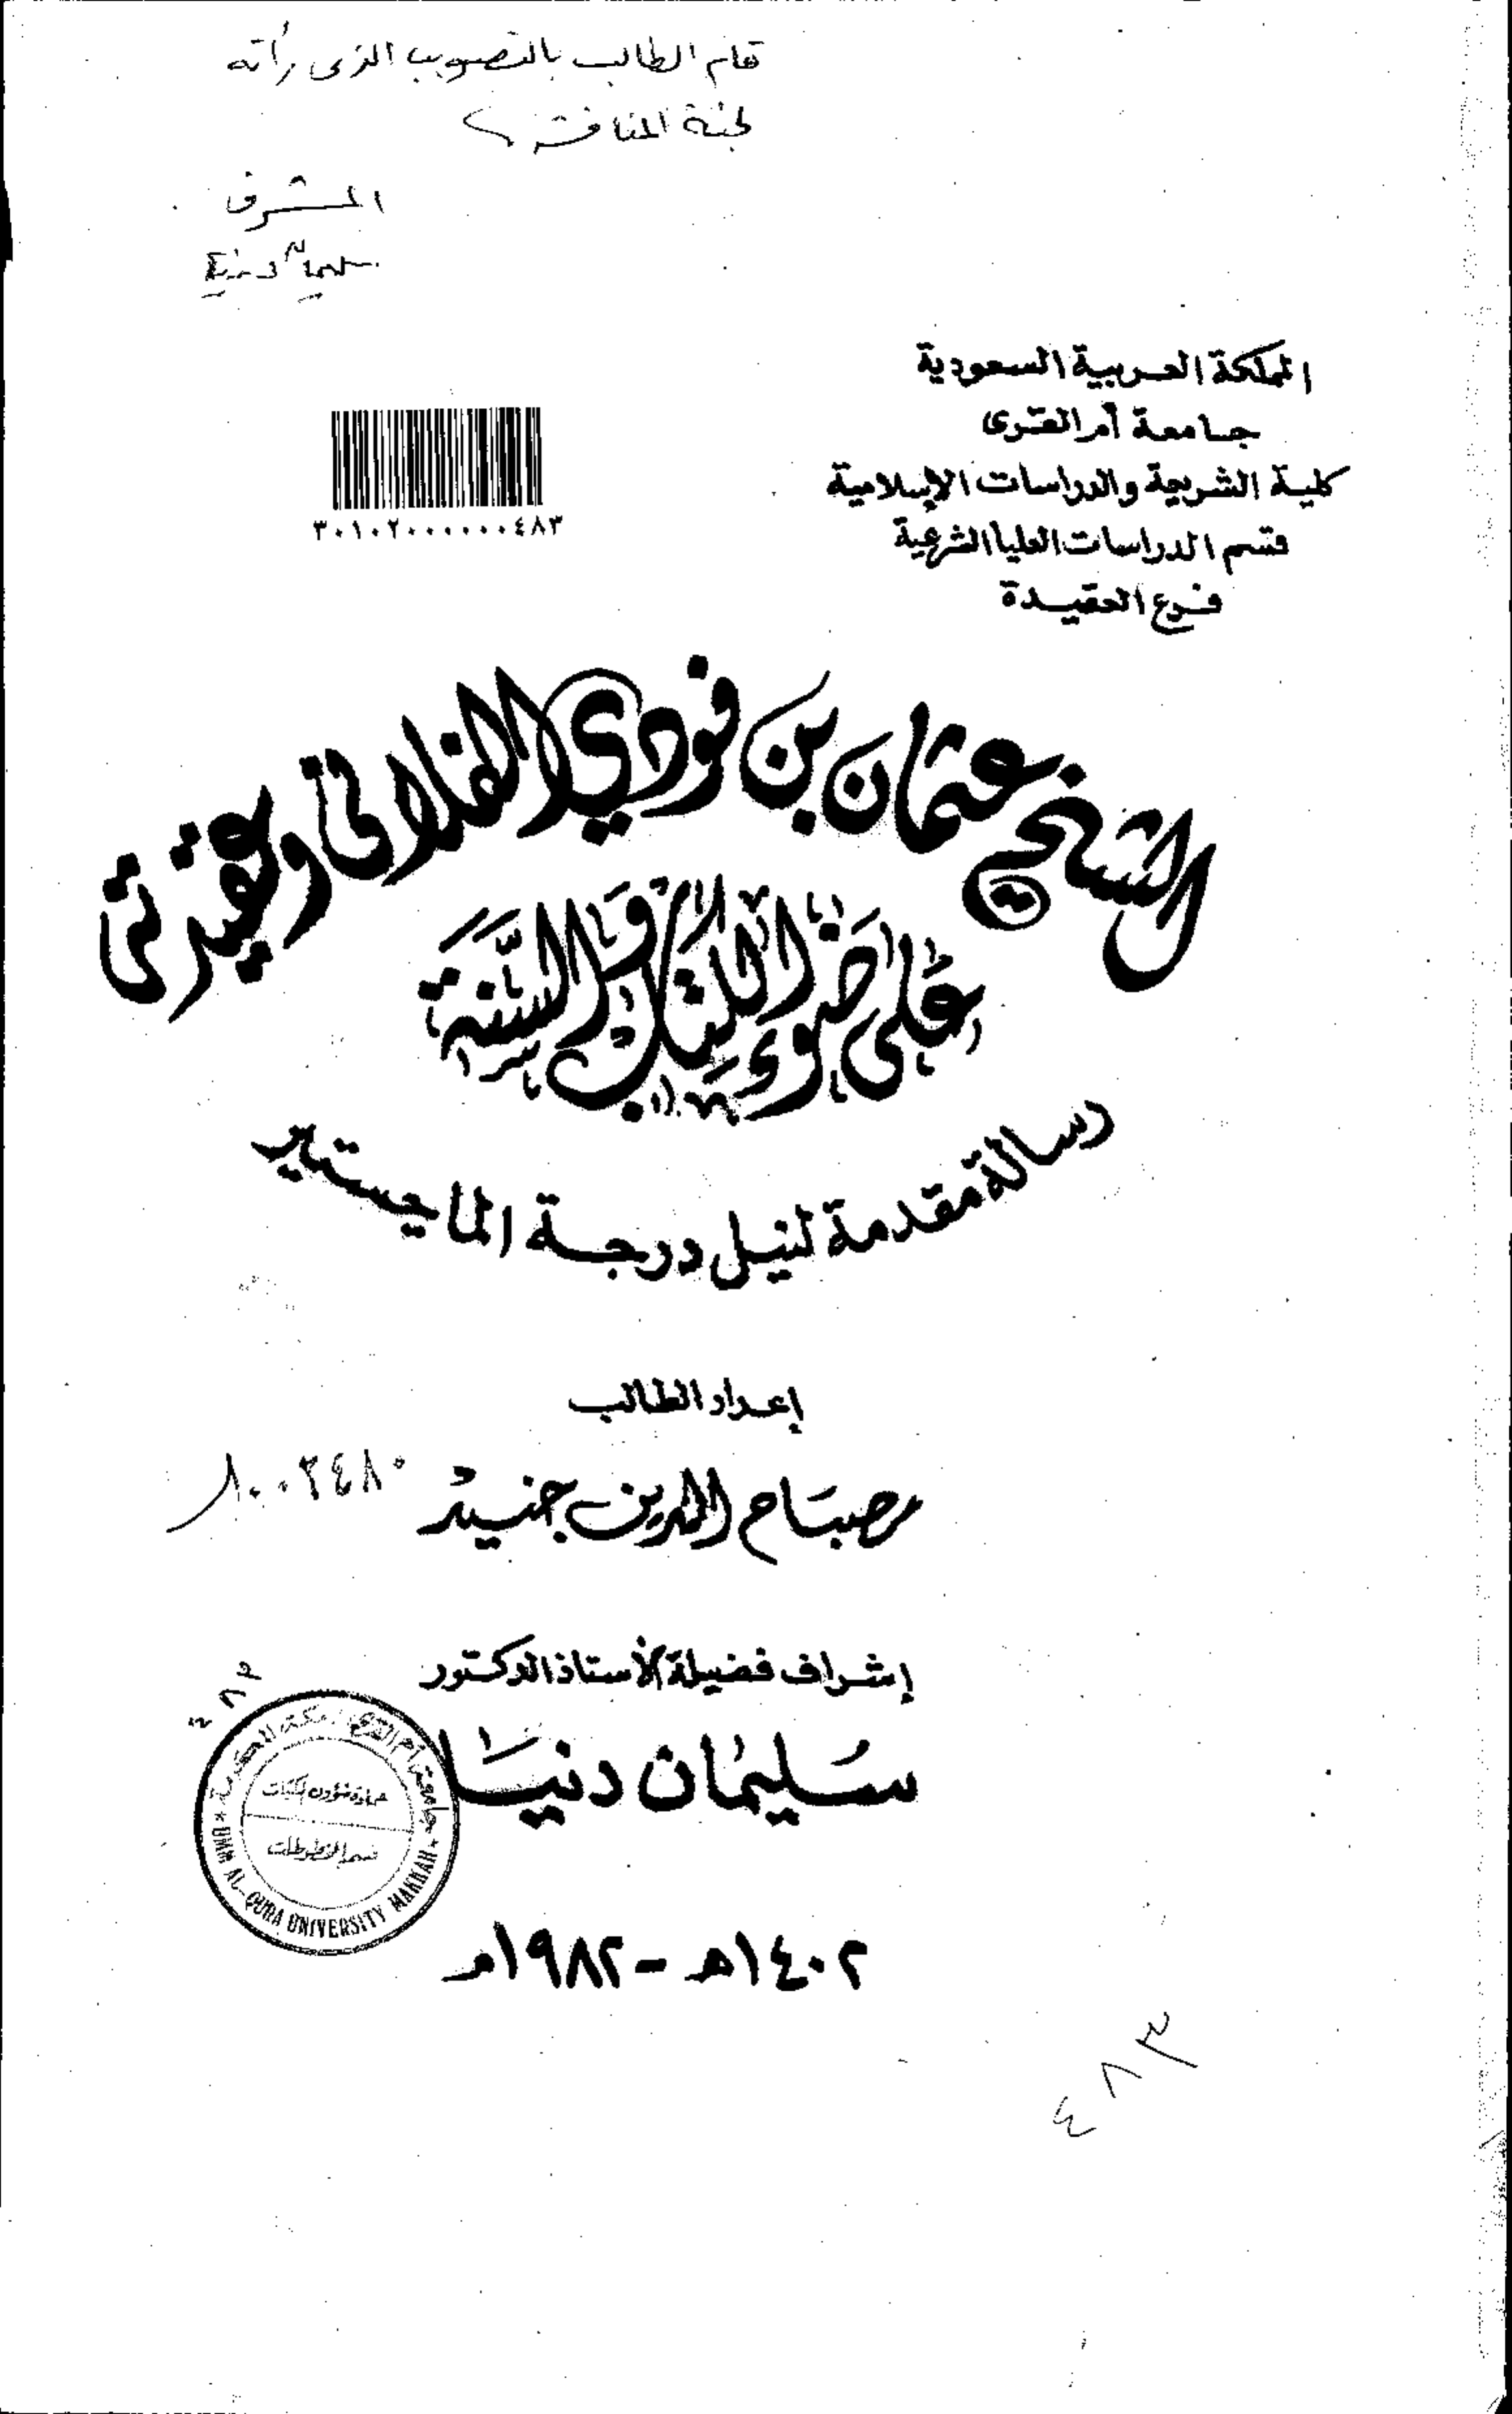 قام الطالب بالتصويب الذى رأته
لجنة المناقشة
المشرف
سليمان دنيا
المملكة العربية السعودية
جامعة أم القرى
كلية الشريعة والدراسات الإسلامية
قسم الدراسات العليا الشرعية
فرع العقيدة
٣٠١٠٢٠٠٠٠٠٠٤٨٣
الشيخ عثمان بن فودي الفلاتي وعقيدته
على ضوء الكتاب والسنة
رسالة مقدمة لنيل درجة الماجستير
إعداد الطالب
مصباح الدين جنيد ٨٠٠٢٤٨٠
إشراف فضيلة الأستاذ الدكتور
سليمان دنيا
٤٨٣
جامعة أم القرى مكة المكرمة
عمادة شؤون المكتبات
قسم المخطوطات
UMM AL-QURA UNIVERSITY MAKKAH
١٤٠٢هـ - ١٩٨٢م
٤٨٣